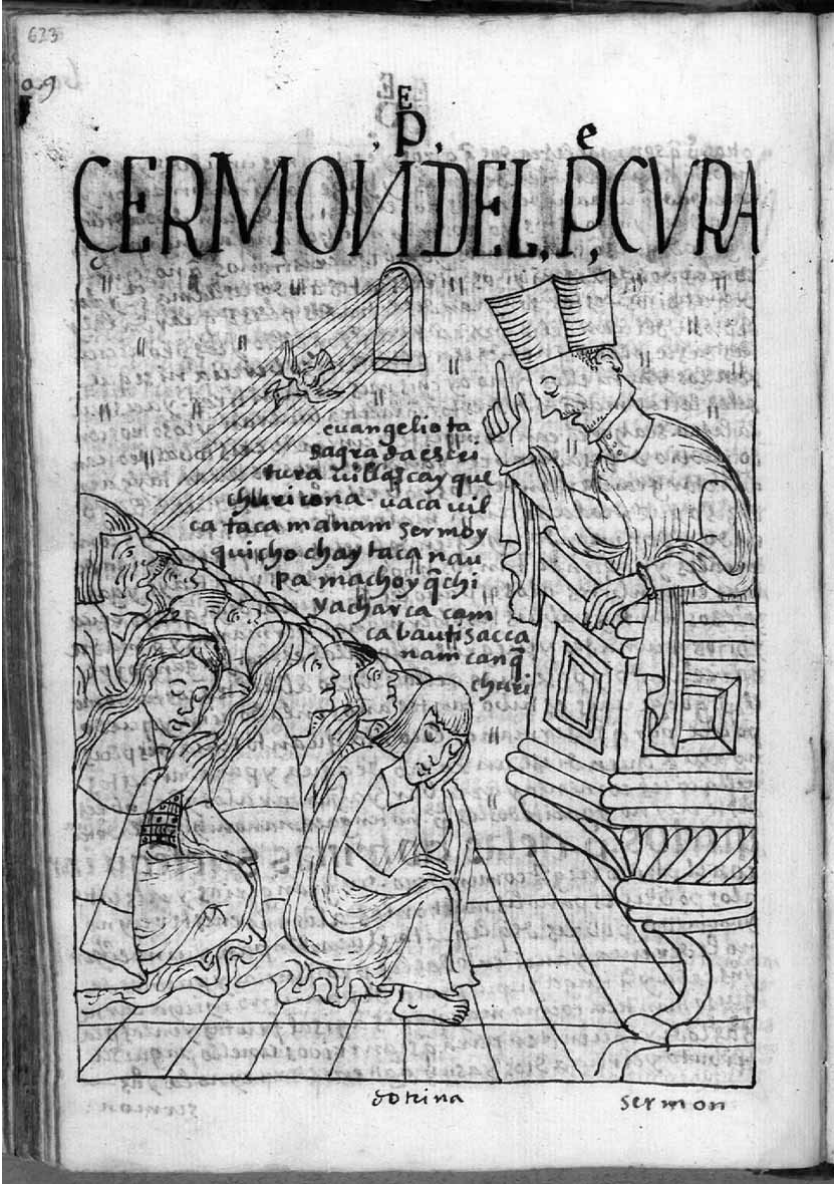 623
P, E
CERMON DEL, P,e CVRA
euangeliota
sagrada escri
tura uillascayque
churicona. uaca uil
ca taca manam sermoy
quicho chaytaca nau
pa machoyq̃chi
yacharca cam
ca bautisacca
nam canq̃
churi
dotrina
sermon